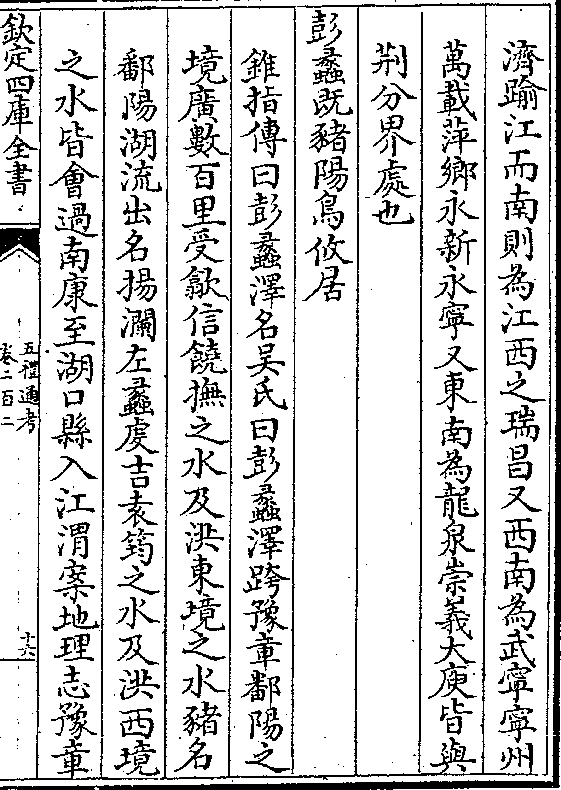 濟踰江而南則為江西之瑞昌又西南為武寧寧州
萬載萍鄉永新永寧又東南為龍泉崇義大庾皆與
荆分界處也
彭蠡既豬陽鳥攸居
錐指傳曰彭蠡澤名吳氏曰彭蠡澤跨豫章鄱陽之
境廣數百里受歙信饒撫之水及洪東境之水豬名
鄱陽湖流出名揚瀾左蠡虔吉袁筠之水及洪西境
之水皆會過南康至湖口縣入江渭案地理志豫章
欽定四庫全書
五禮通考
卷二百二
十六